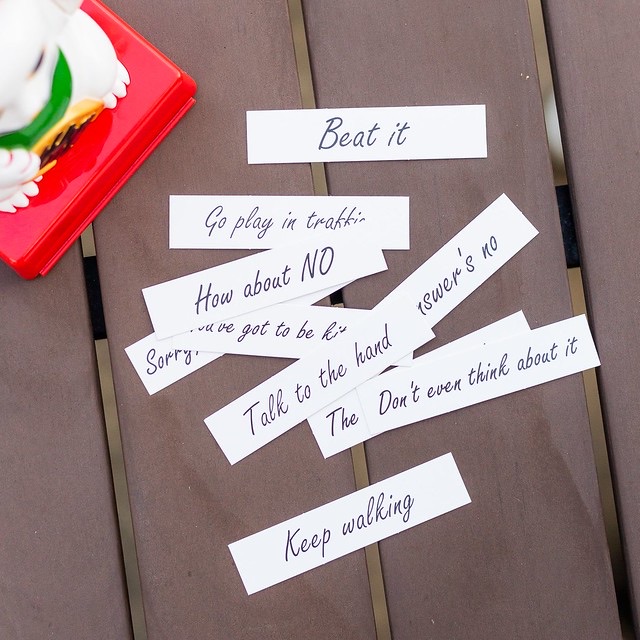 Beat it
Go play in traffic
How about NO
nswer's no
Sorry,
've got to be ki
Talk to the hand
The
Don't even think about it
Keep walking